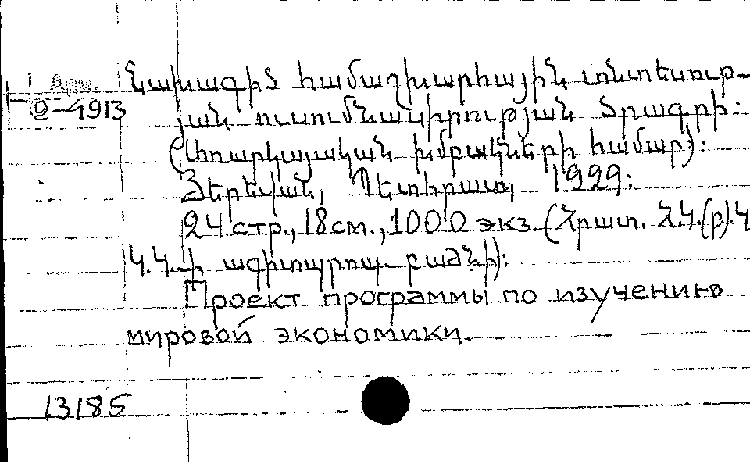 Նախագիծ համաշխարհային տնտեսութ-
Ջ-4913
յան ուսումնասիրության ծրագրի:
(Լսարկայական խմբակների համար):
Յերեվան, Պետհրատ, 1929:
24 стр., 18 см., 1000 экз. (Հրատ. Հ.Կ.(բ).Կ
Կ.Կ.-ի ագիտպրոպ բաժնի):
Проект программы по изучению
мировой экономики.
13185